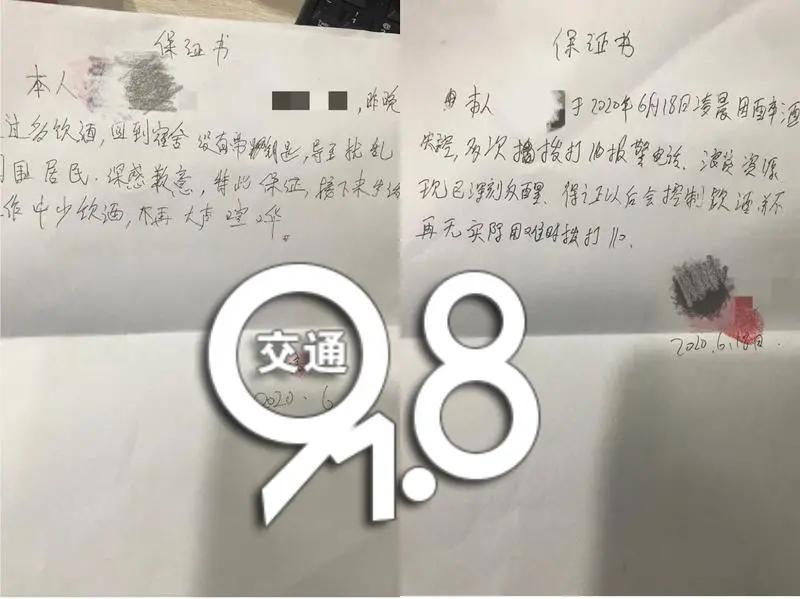 保证书
本人
,昨晚
过多饮酒,回到宿舍没有带钥匙,导至扰乱
周围居民.深感歉意,特此保证,接下来生活
作中少饮酒,不再大声喧哗。
2020.6
保证书
本人 于2020年6月18日凌晨因醉酒
失态,多次拨打110报警电话.浪费资源
现已深刻反醒.保证以后会控制饮酒并不
再无实际困难时拨打110.
2020.6.18日.
交通
91.8